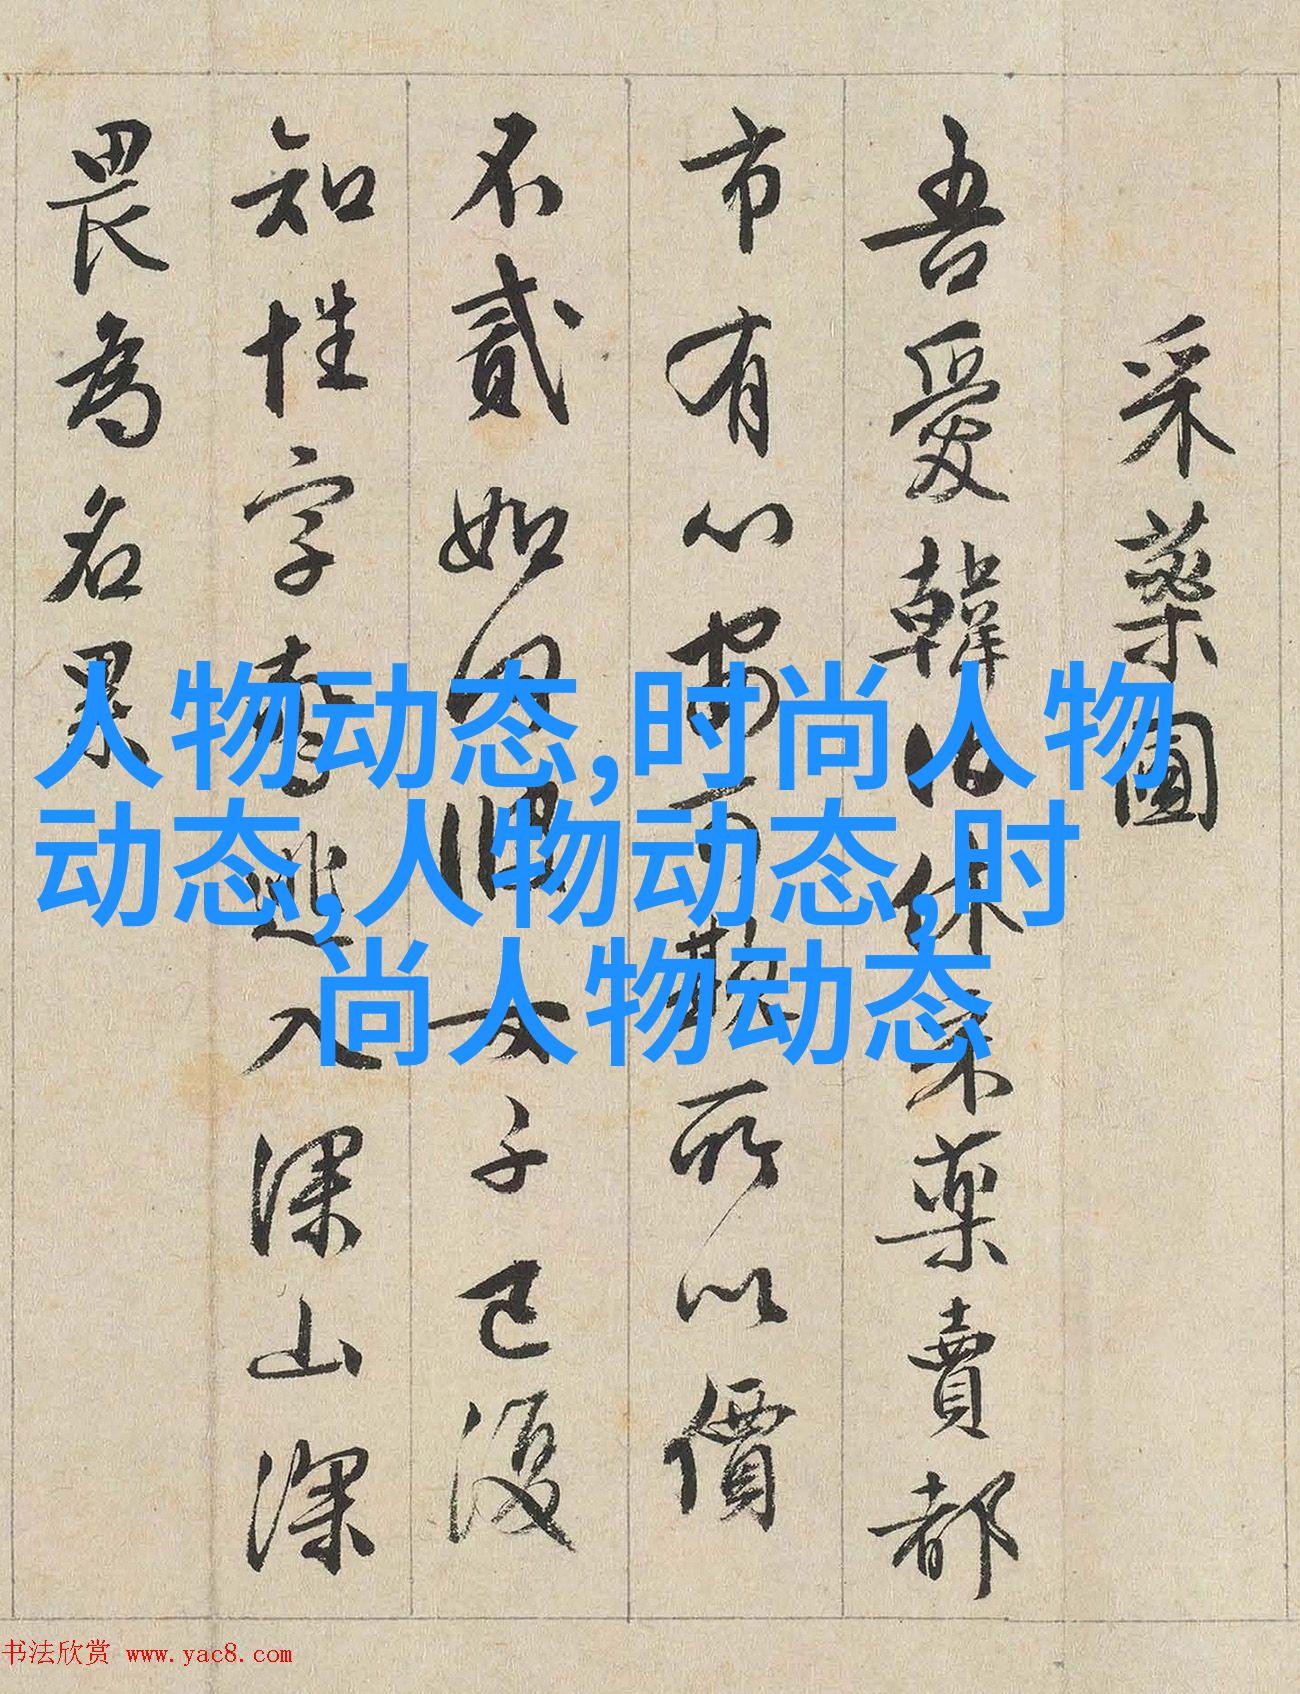 采藥圖
吾愛韓伯休采藥賣都
市有心寧可欺所以價
不貳如何女子已復
知性字逃入深山深
畏為名累
人物动态,时尚人物
动态,人物动态,时
尚人物动态
书法欣赏 www.yac8.com